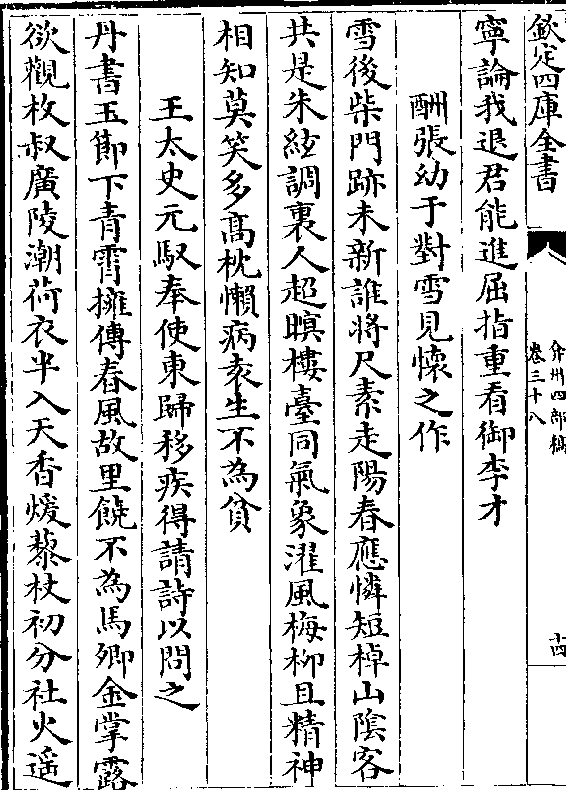 欽定四庫全書
弇州四部稿
卷三十八
十四
寧論我退君能進屈指重看御李才
酬張幼于對雪見懷之作
雪後柴門跡未新誰將尺素走陽春應憐短棹山陰客
共是朱絃調裏人起暝樓臺同氣象濯風梅柳且精神
相知莫笑多髙枕懶病袁生不為貧
王太史元馭奉使東歸移疾得請詩以問之
丹書玉節下青霄擁傳春風故里饒不為馬卿金掌露
欲觀枚叔廣陵潮荷衣半入天香煖藜杖初分社火遥